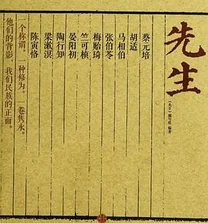 先生
蔡元培
胡适
马相伯
张伯苓
梅贻琦
竺可桢
晏阳初
陶行知
梁漱溟
陈寅恪
一个称谓，一种修为，一卷隽永。
他们的背影，我们民族的正面。